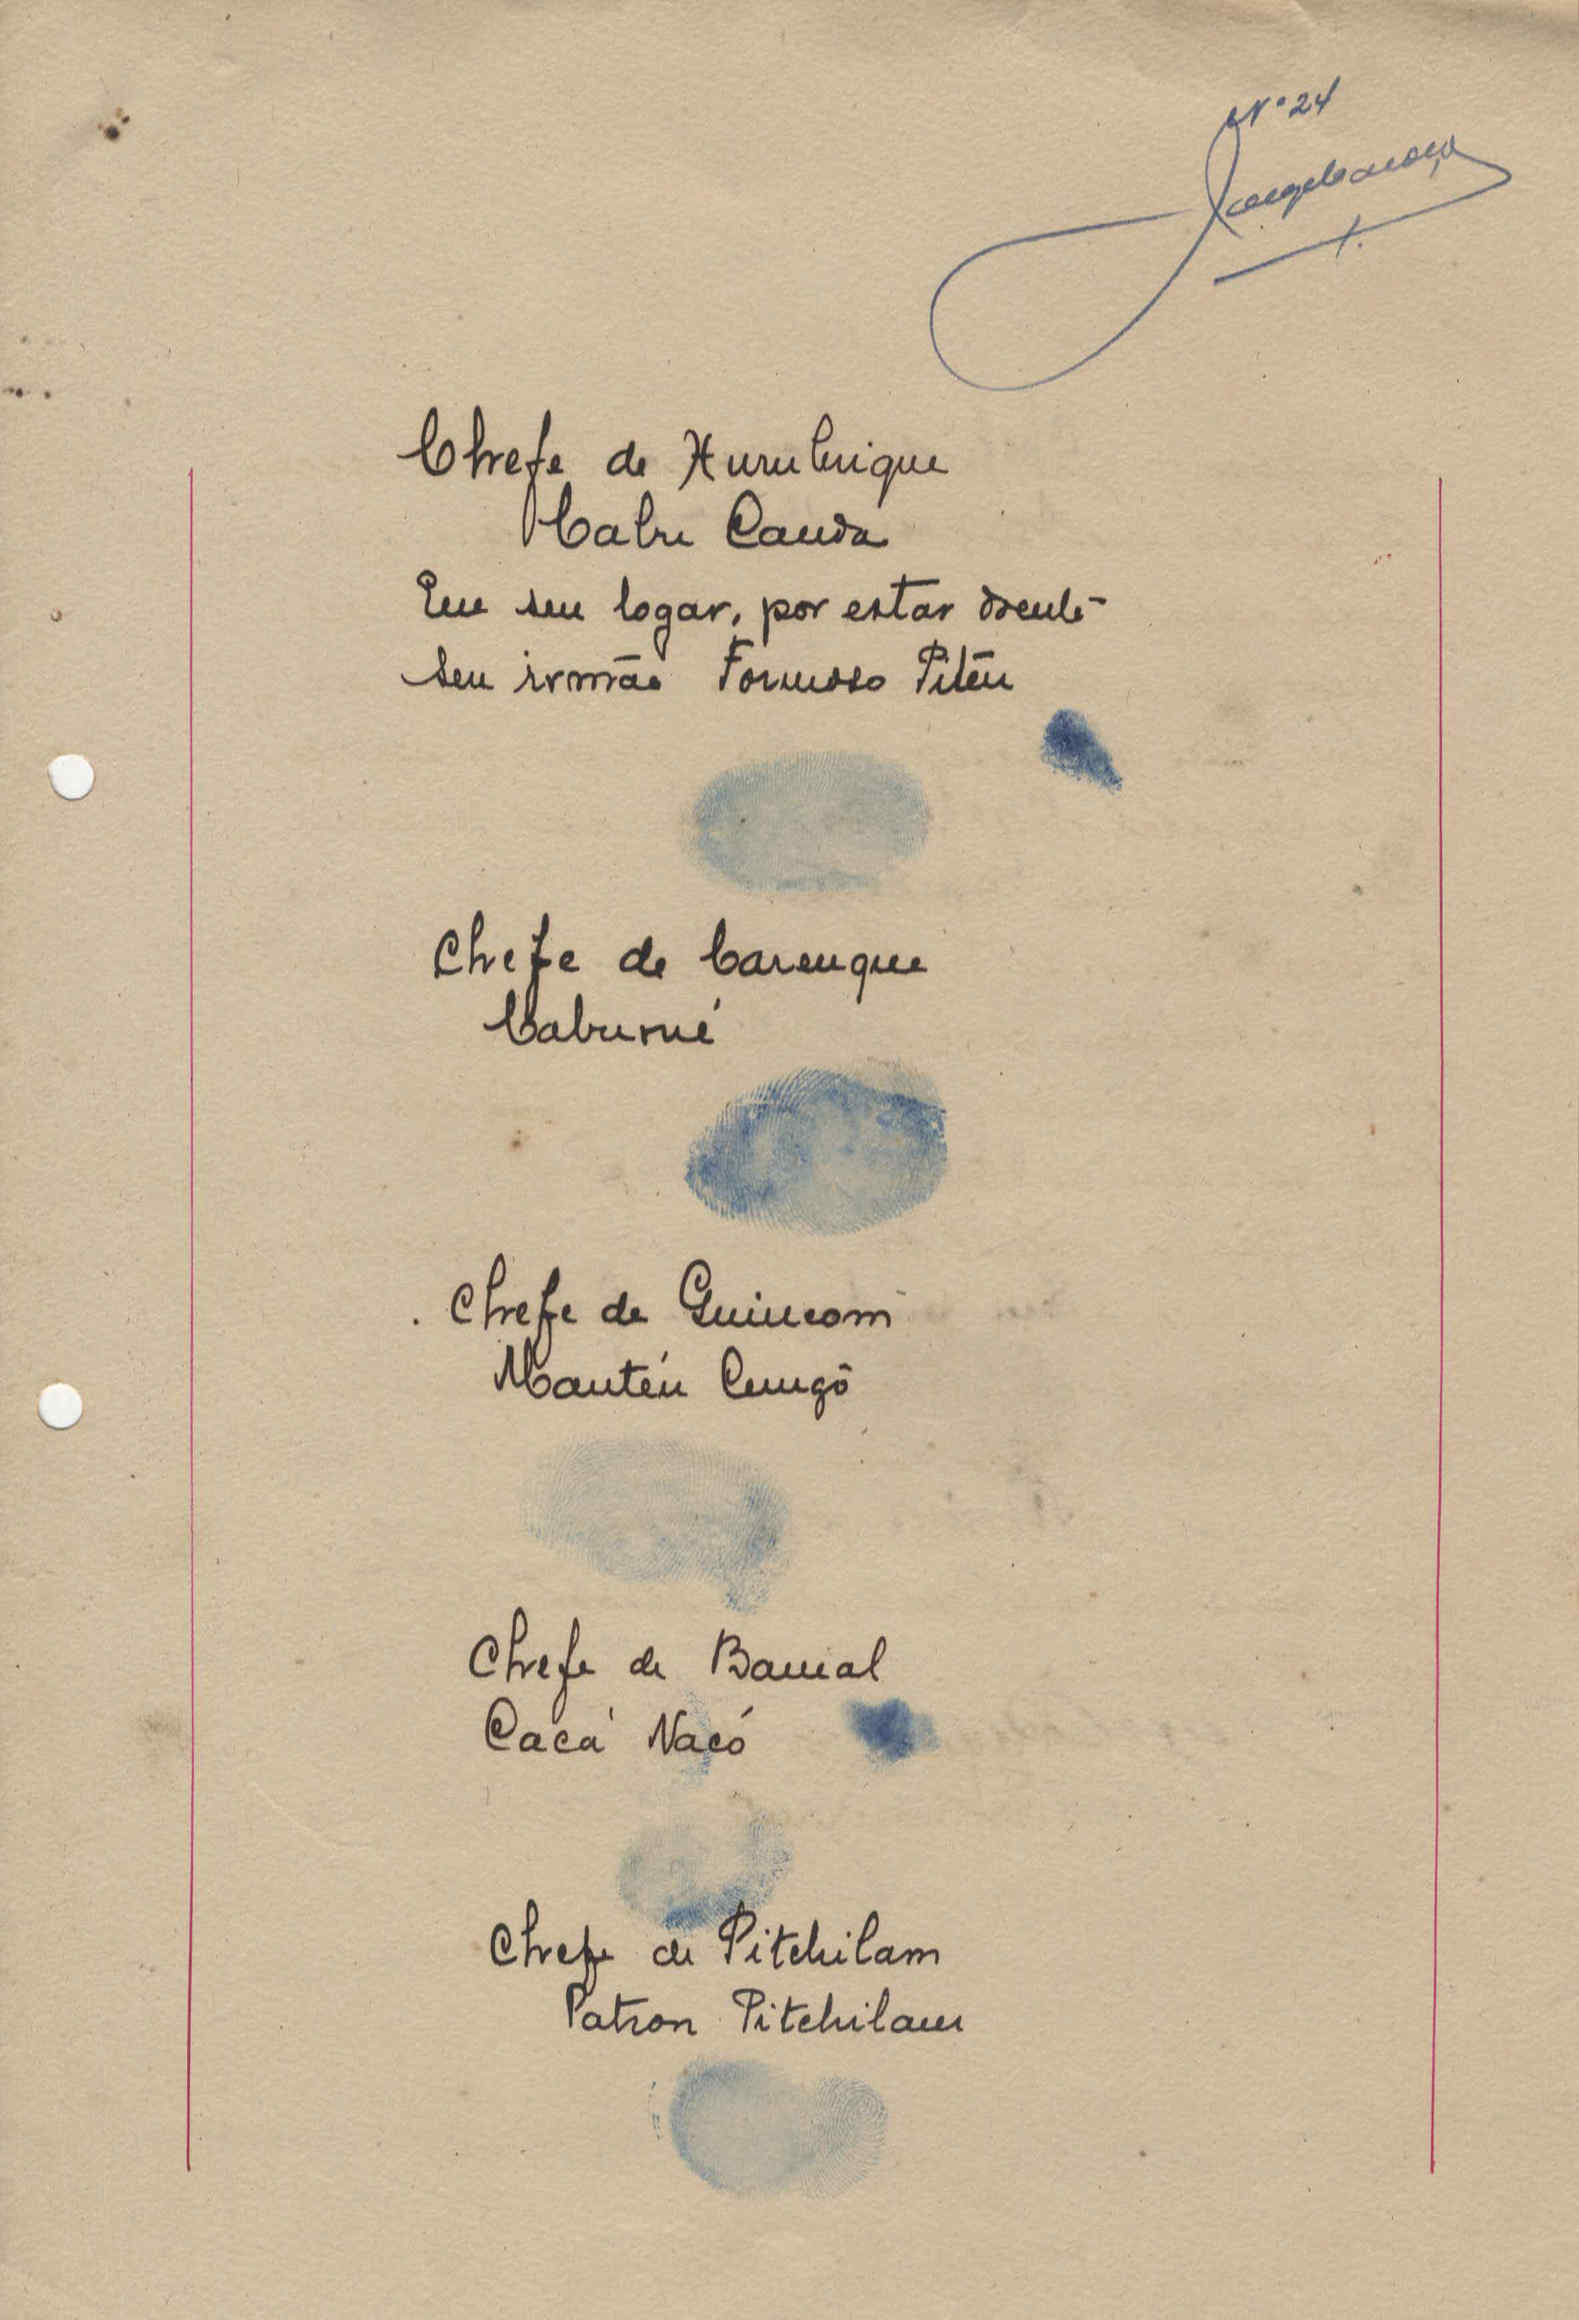 Nº 24
Chefe de
Cabu Canda
Em seu logar, por estar doente
seu irmão Formoso Pitéu
Chefe de Carenque
Caburné
Chefe de Guincom
Mantéu Cungô
Chefe de Bamal
Cacá Nacó
Chefe de Pitchilam
Patron Pitchilam